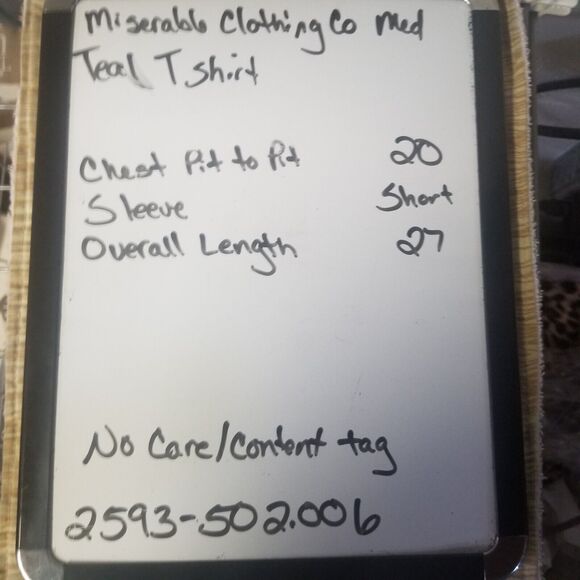 Miserable Clothing Co Med
Teal T Shirt
Chest Pit to Pit 20
Sleeve Short
Overall Length 27
No Care/Content tag
2593-502.006